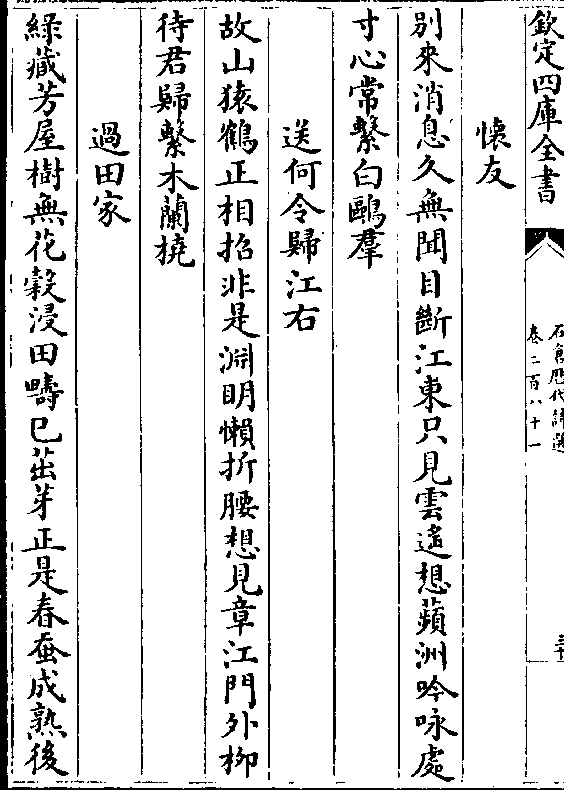 欽定四庫全書
石倉歷代詩選
卷二百八十一
懷友
別來消息久無聞目斷江東只見雲遥想蘋洲吟咏處
寸心常繫白鷗羣
送何令歸江右
故山猿鶴正相招非是淵明懶折腰想見章江門外栁
待君歸繫木蘭橈
過田家
緑藏芳屋樹無花穀浸田疇已茁芽正是春蚕成熟後